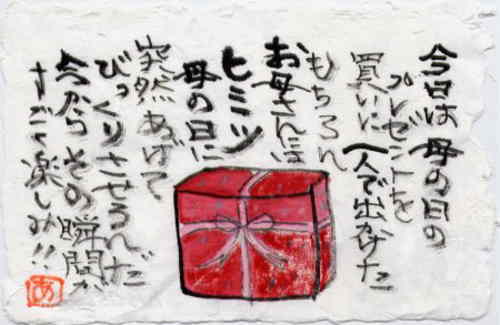 今日は母の日の
プレゼントを
買いに一人で出かけた
もちろん
お母さんには
ヒミツ
母の日に
突然あげて
びっくりさせるんだ
今からその瞬間が
すごく楽しみ!!
あ